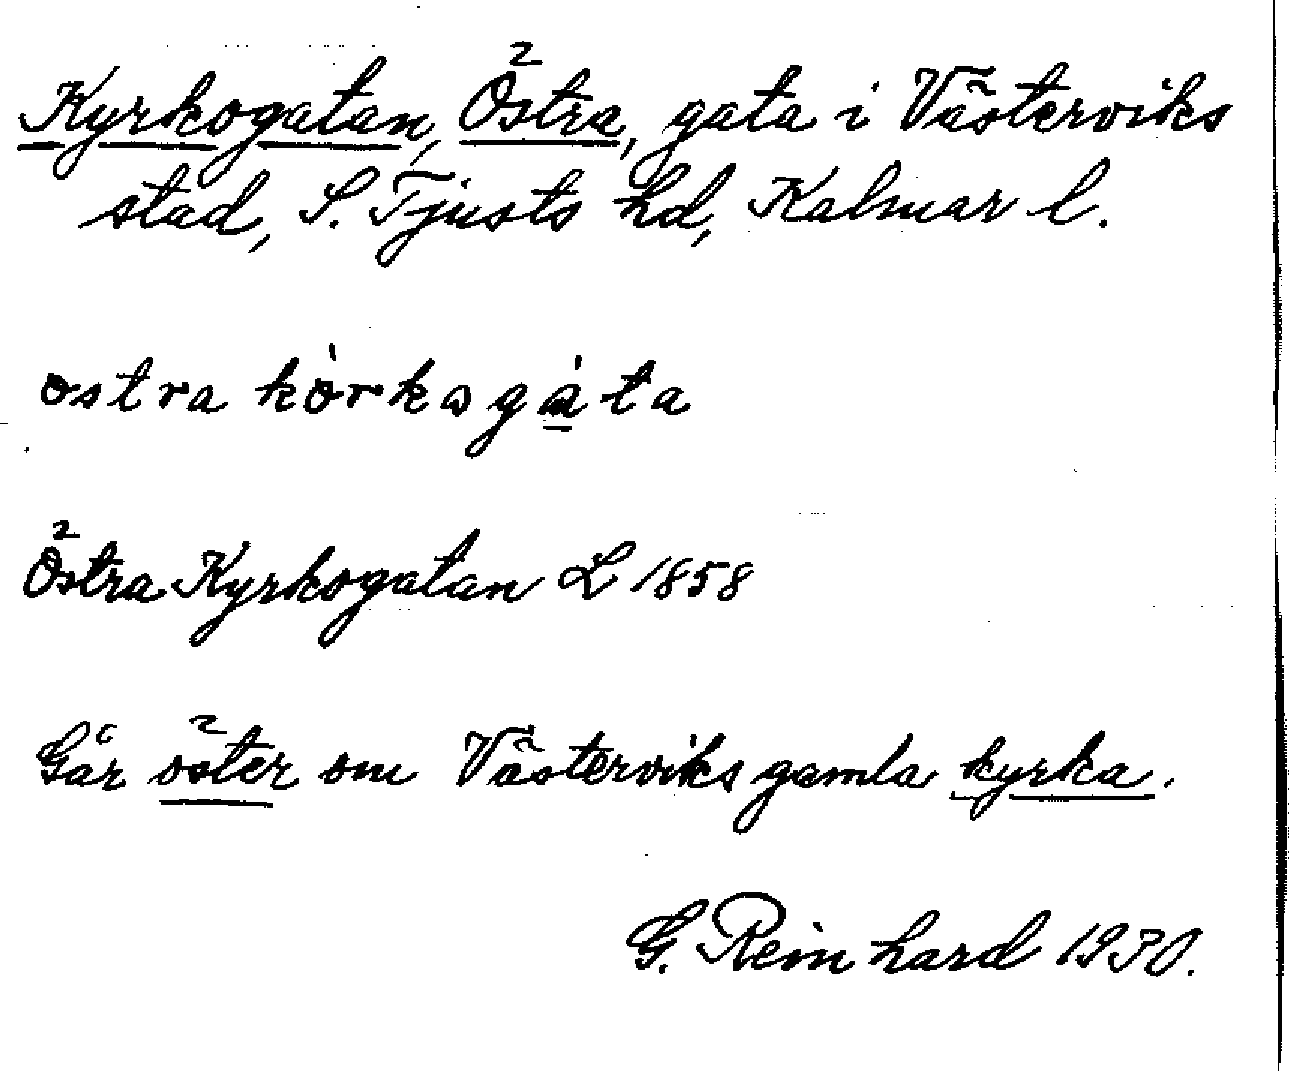 Kyrkogatan, Östra, gata i Västerviks
stad, S. Tjusts hd, Kalmar l.
ostra kòrkogáta
Östra Kyrkogatan L 1858
Går öster om Västerviks gamla kyrka.
G. Reinhard 1930.